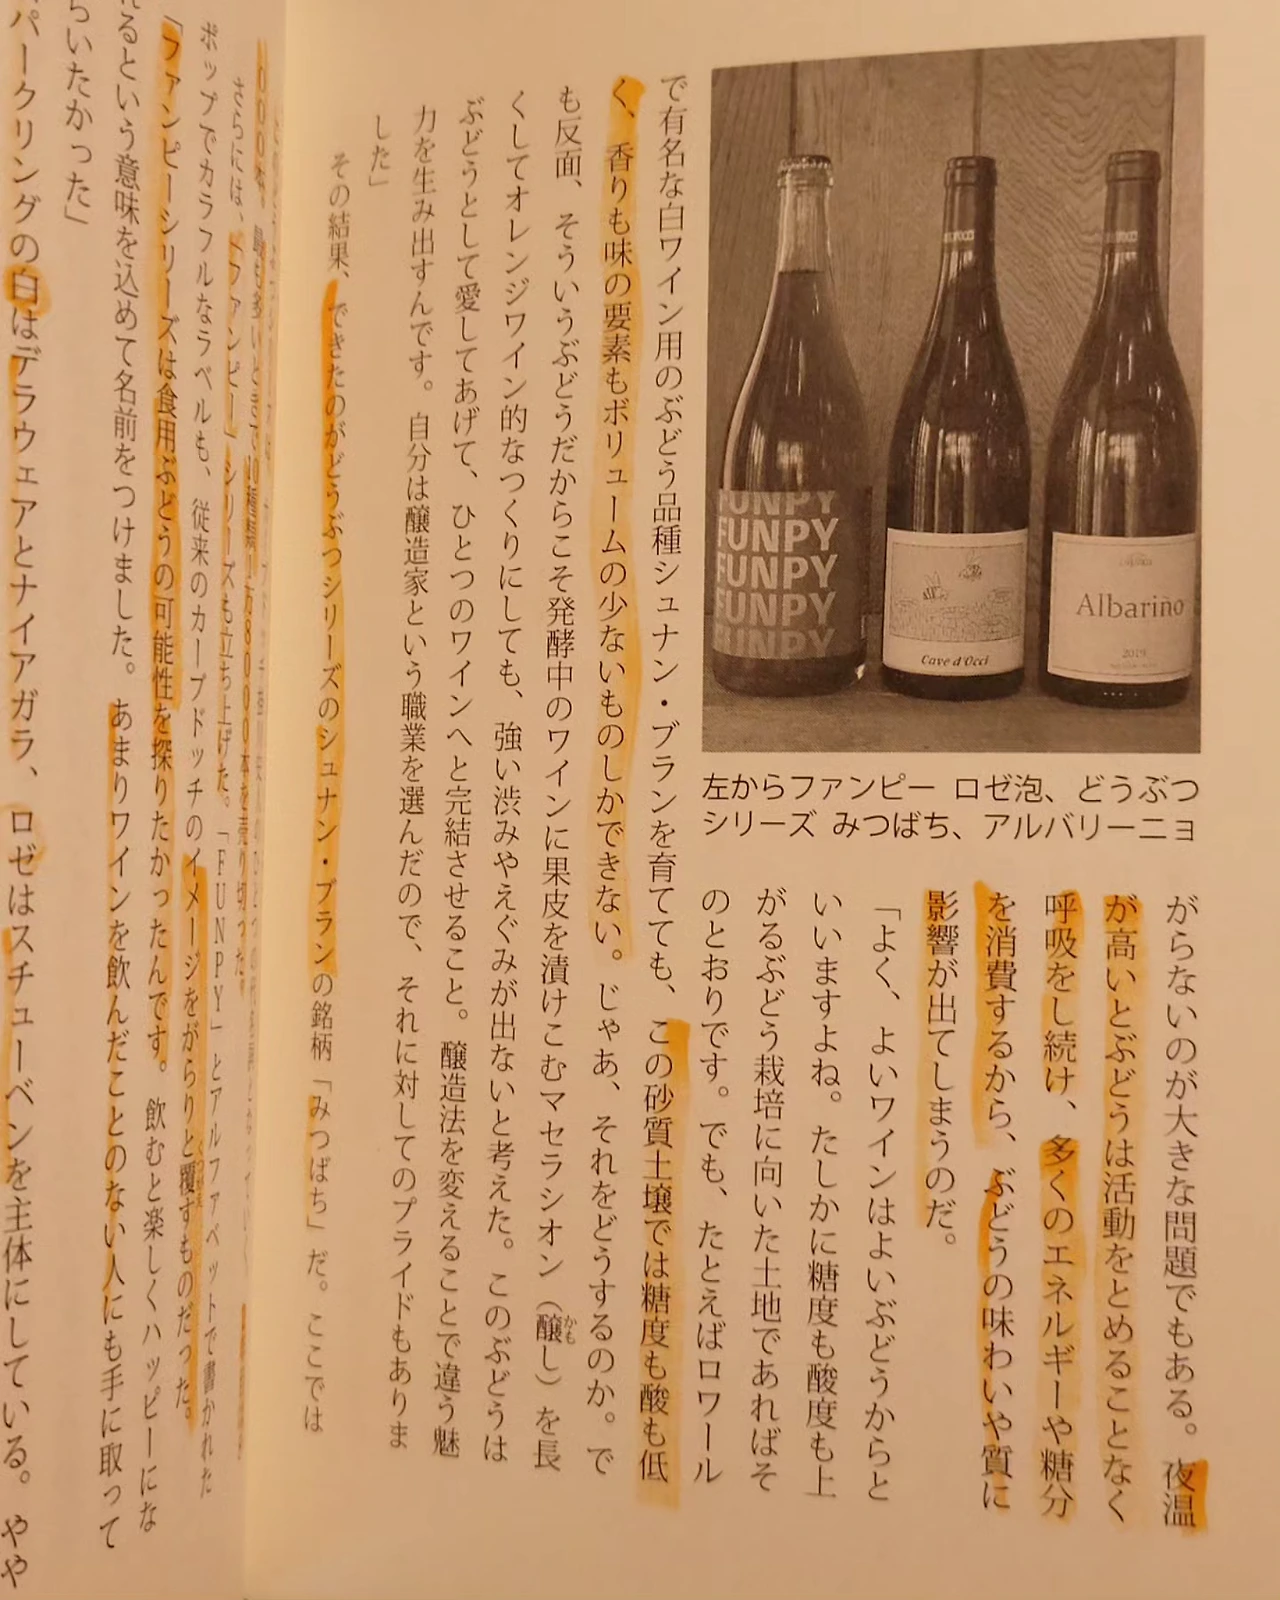 FUNPY
FUNPY
FUNPY
FUNPY
FUNPY
Cave d'Occi
Albariño
2019
左からファンピー ロゼ泡、どうぶつ
シリーズ みつばち、アルバリーニョ
がらないのが大きな問題でもある。夜温
が高いとぶどうは活動をとめることなく
呼吸をし続け、多くのエネルギーや糖分
を消費するから、ぶどうの味わいや質に
影響が出てしまうのだ。
「よく、よいワインはよいぶどうからと
いいますよね。たしかに糖度も酸度も上
がるぶどう栽培に向いた土地であればそ
のとおりです。でも、たとえばロワール
で有名な白ワイン用のぶどう品種シュナン・ブランを育てても、この砂質土壌では糖度も酸も低
く、香りも味の要素もボリュームの少ないものしかできない。じゃあ、それをどうするのか。で
も反面、そういうぶどうだからこそ発酵中のワインに果皮を漬けこむマセラシオン（醸し）を長
かも
くしてオレンジワイン的なつくりにしても、強い渋みやえぐみが出ないと考えた。このぶどうは
ぶどうとして愛してあげて、ひとつのワインへと完結させること。醸造法を変えることで違う魅
力を生み出すんです。自分は醸造家という職業を選んだので、それに対してのプライドもありま
した」
その結果、できたのがどうぶつシリーズのシュナン・ブランの銘柄「みつばち」だ。ここでは
最も多いときで10種類1万8000本を売り切った。
さらには、「ファンピー」シリーズも立ち上げた。「FUNPY」とアルファベットで書かれた
ポップでカラフルなラベルも、従来のカーブドッチのイメージをがらりと覆すものだった。
くつがえ
「ファンピーシリーズは食用ぶどうの可能性を探りたかったんです。飲むと楽しくハッピーにな
れるという意味を込めて名前をつけました。あまりワインを飲んだことのない人にも手に取って
らいたかった」
パークリングの白はデラウェアとナイアガラ、ロゼはスチューベンを主体にしている。やや